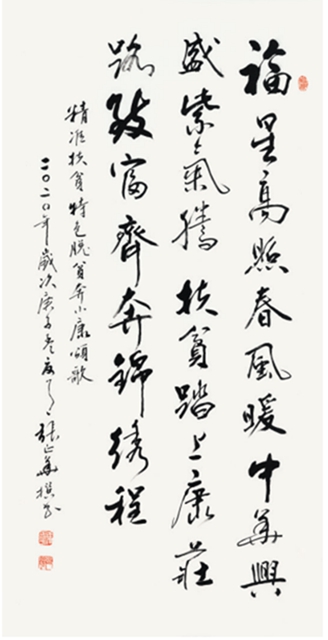 福星高照春風暖中華興
盛紫氣騰扶貧踏上康莊
路致富齊奔錦綉程
精准扶貧特色脫貧奔小康頌歌
二〇二〇年歲次庚子孟夏張正華撰書